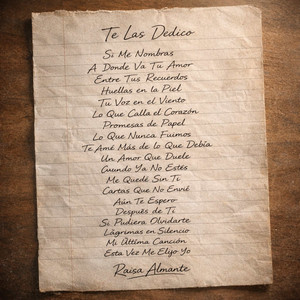 Te Las Dedico
Si Me Nombras
A Donde Va Tu Amor
Entre Tus Recuerdos
Huellas en la Piel
Tu Voz en el Viento
Lo Que Calla el Corazón
Promesas de Papel
Lo Que Nunca Fuimos
Te Amé Más de lo Que Debía
Un Amor Que Duele
Cuando Ya No Estés
Me Quedé Sin Ti
Cartas Que No Envié
Aún Te Espero
Después de Ti
Si Pudiera Olvidarte
Lágrimas en Silencio
Mi Última Canción
Esta Vez Me Elijo Yo
Raisa Almante